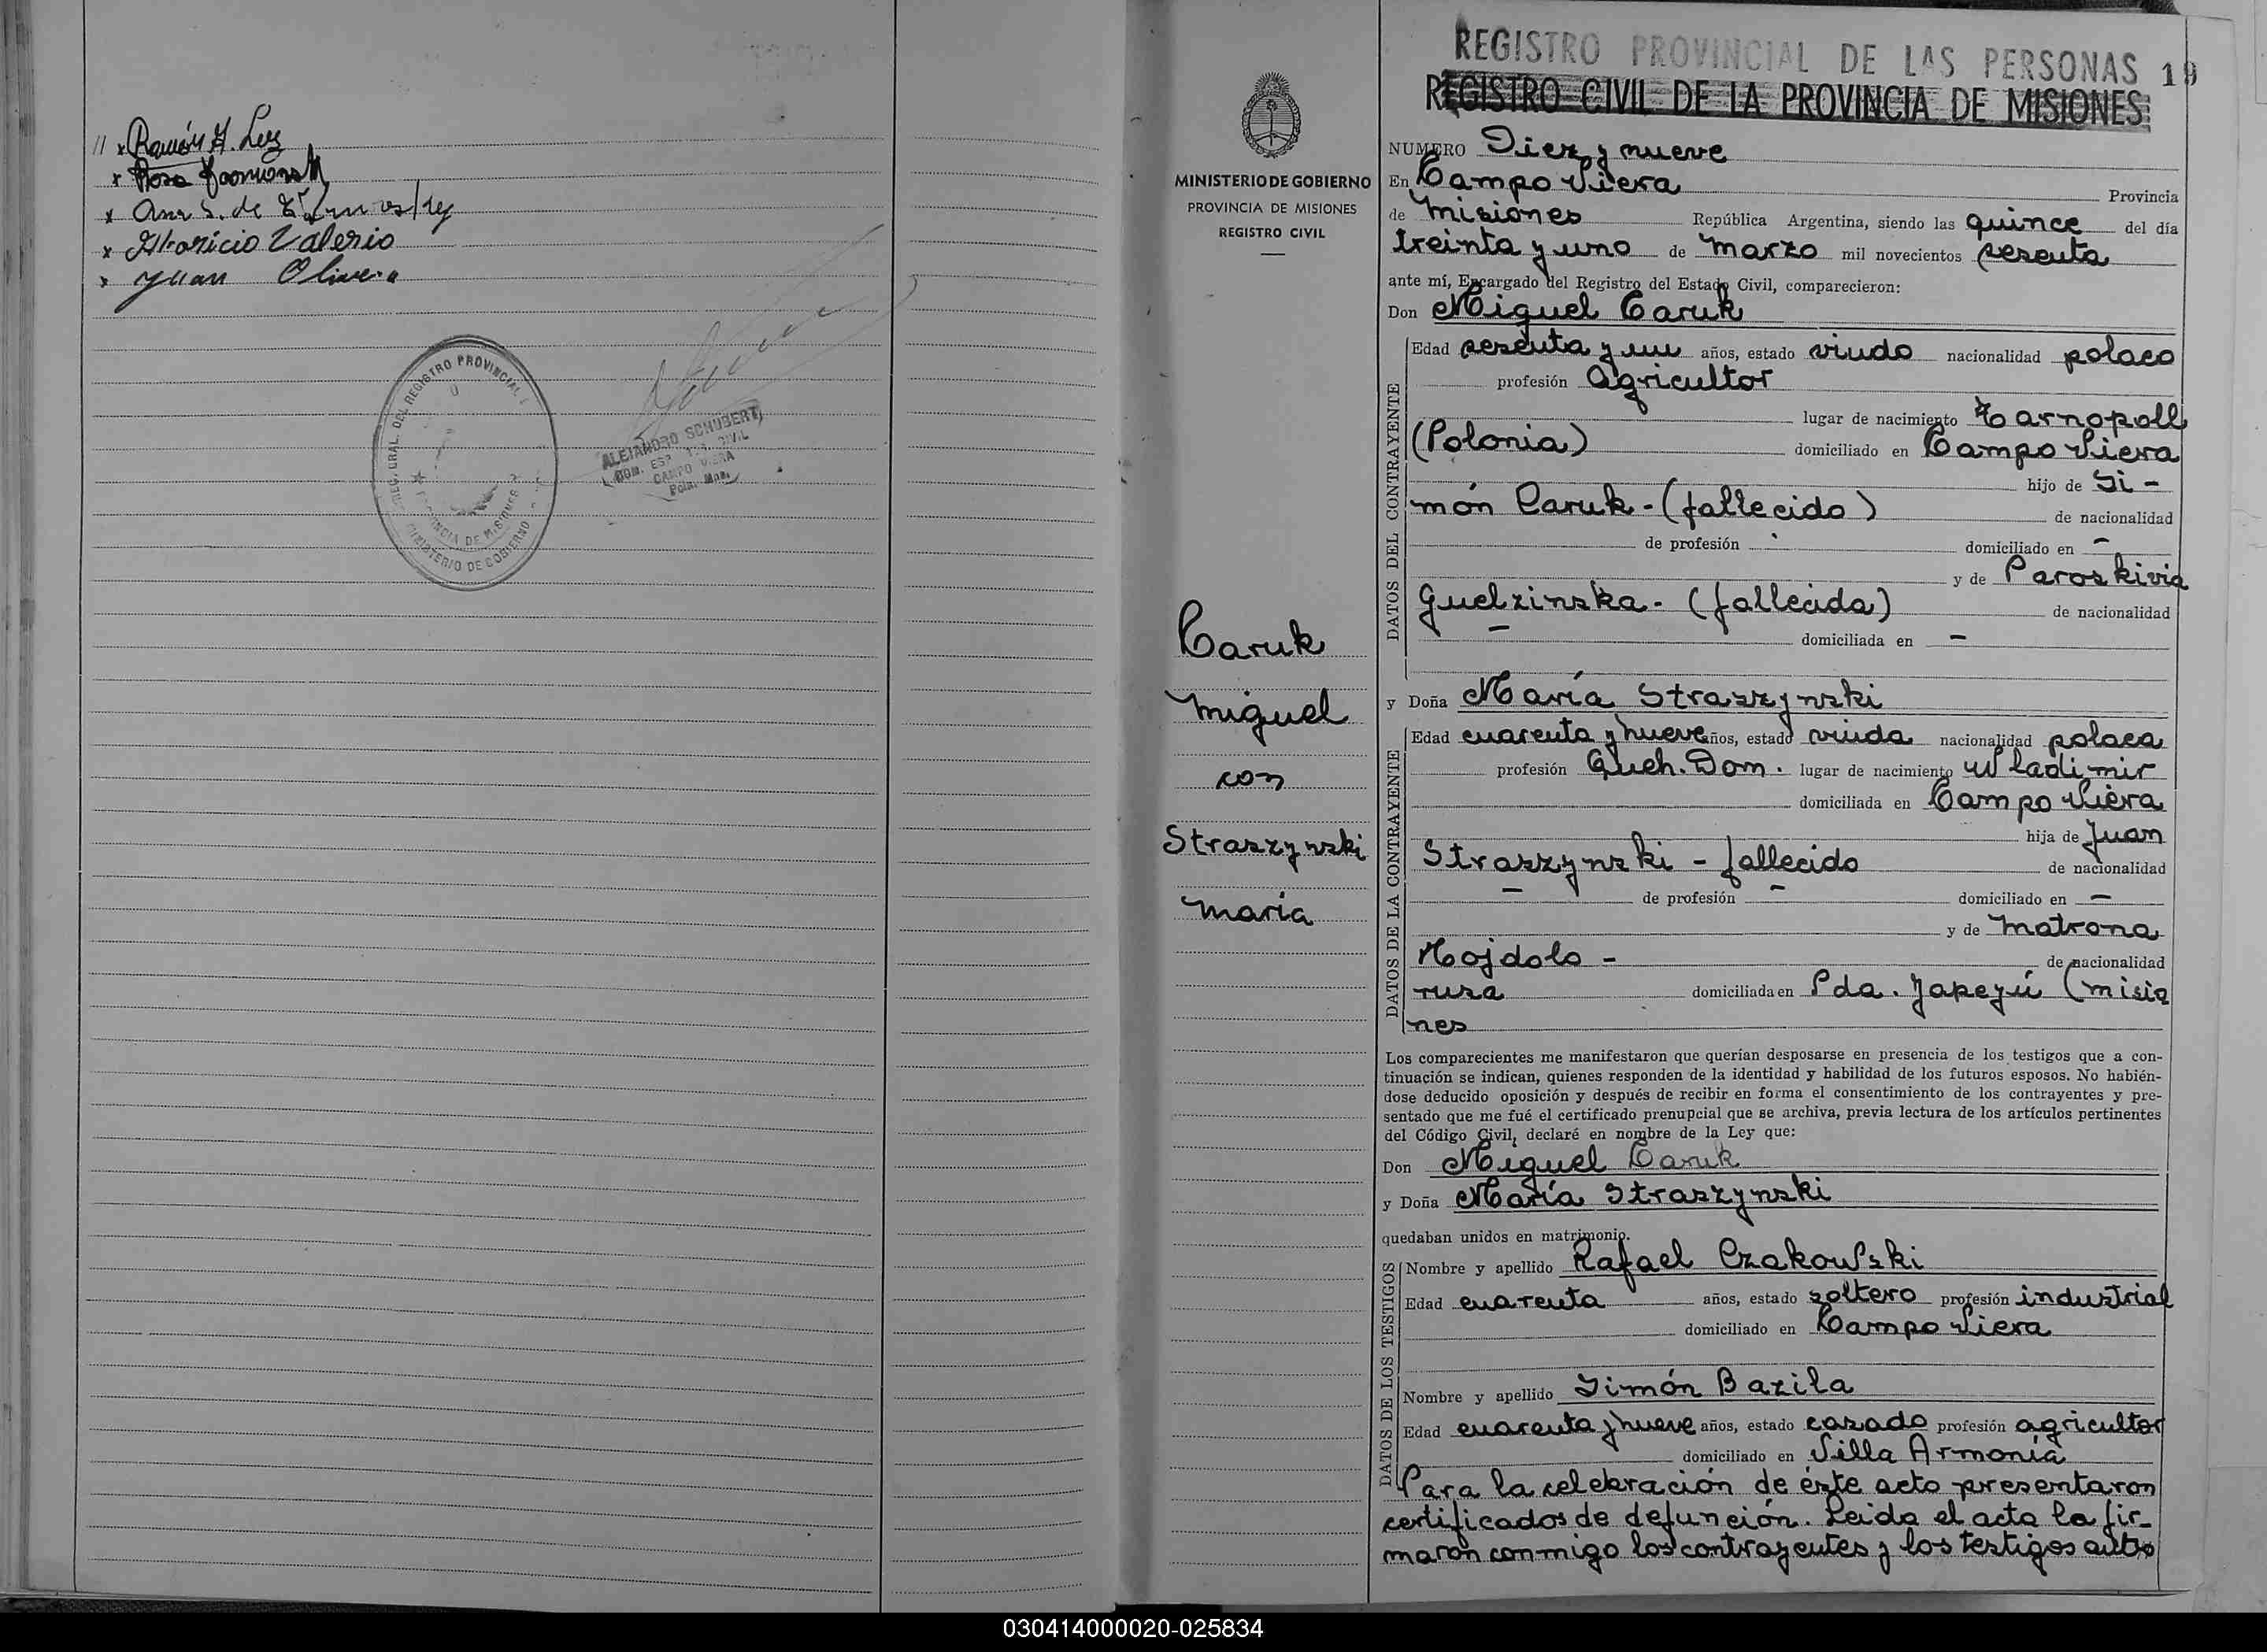 // x Ramón A. Luz
x Rosa
x Ana S. de
x Maricio Valerio
x Juan Olivera
REG. GRAL. DEL REGISTRO PROVINCIAL
PROVINCIA DE MISIONES
MINISTERIO DE GOBIERNO
ALEJANDRO SCHUBERT
CAMPO VIERA
MINISTERIO DE GOBIERNO
PROVINCIA DE MISIONES
REGISTRO CIVIL
Caruk
Miguel
con
Straszynski
María
REGISTRO PROVINCIAL DE LAS PERSONAS 19
REGISTRO CIVIL DE LA PROVINCIA DE MISIONES
NUMERO Diez y nueve
En Campo Viera Provincia
de Misiones República Argentina, siendo las quince del día
treinta y uno de Marzo mil novecientos sesenta
ante mí, Encargado del Registro del Estado Civil, comparecieron:
Don Miguel Caruk
DATOS DEL CONTRAYENTE
Edad sesenta y un años, estado viudo nacionalidad polaco
profesión Agricultor
lugar de nacimiento Tarnopoll
(Polonia) domiciliado en Campo Viera
hijo de Si-
món Caruk - (fallecido) de nacionalidad
de profesión - domiciliado en -
y de Paroskivia
Guelzinska - (fallecida) de nacionalidad
- domiciliada en -
y Doña María Straszynski
DATOS DE LA CONTRAYENTE
Edad cuarenta y nueve años, estado viuda nacionalidad polaca
profesión Queh. Dom. lugar de nacimiento Wladimir
domiciliada en Campo Viera
hija de Juan
Straszynski - fallecido de nacionalidad
- de profesión - domiciliado en -
y de Matrona
Hojdolo - de nacionalidad
rusa domiciliada en Pda. Yapeyú (Misio
nes
Los comparecientes me manifestaron que querían desposarse en presencia de los testigos que a con-
tinuación se indican, quienes responden de la identidad y habilidad de los futuros esposos. No habién-
dose deducido oposición y después de recibir en forma el consentimiento de los contrayentes y pre-
sentado que me fué el certificado prenupcial que se archiva, previa lectura de los artículos pertinentes
del Código Civil, declaré en nombre de la Ley que:
Don Miguel Caruk
y Doña María Straszynski
quedaban unidos en matrimonio.
DATOS DE LOS TESTIGOS
Nombre y apellido Rafael Czakowski
Edad cuarenta años, estado soltero profesión industrial
domiciliado en Campo Viera
Nombre y apellido Simón Bazila
Edad cuarenta y nueve años, estado casado profesión agricultor
domiciliado en Villa Armonía
Para la celebración de éste acto presentaron
certificados de defunción. Leida el acta la fir-
maron conmigo los contrayentes y los testigos antes
030414000020-025834